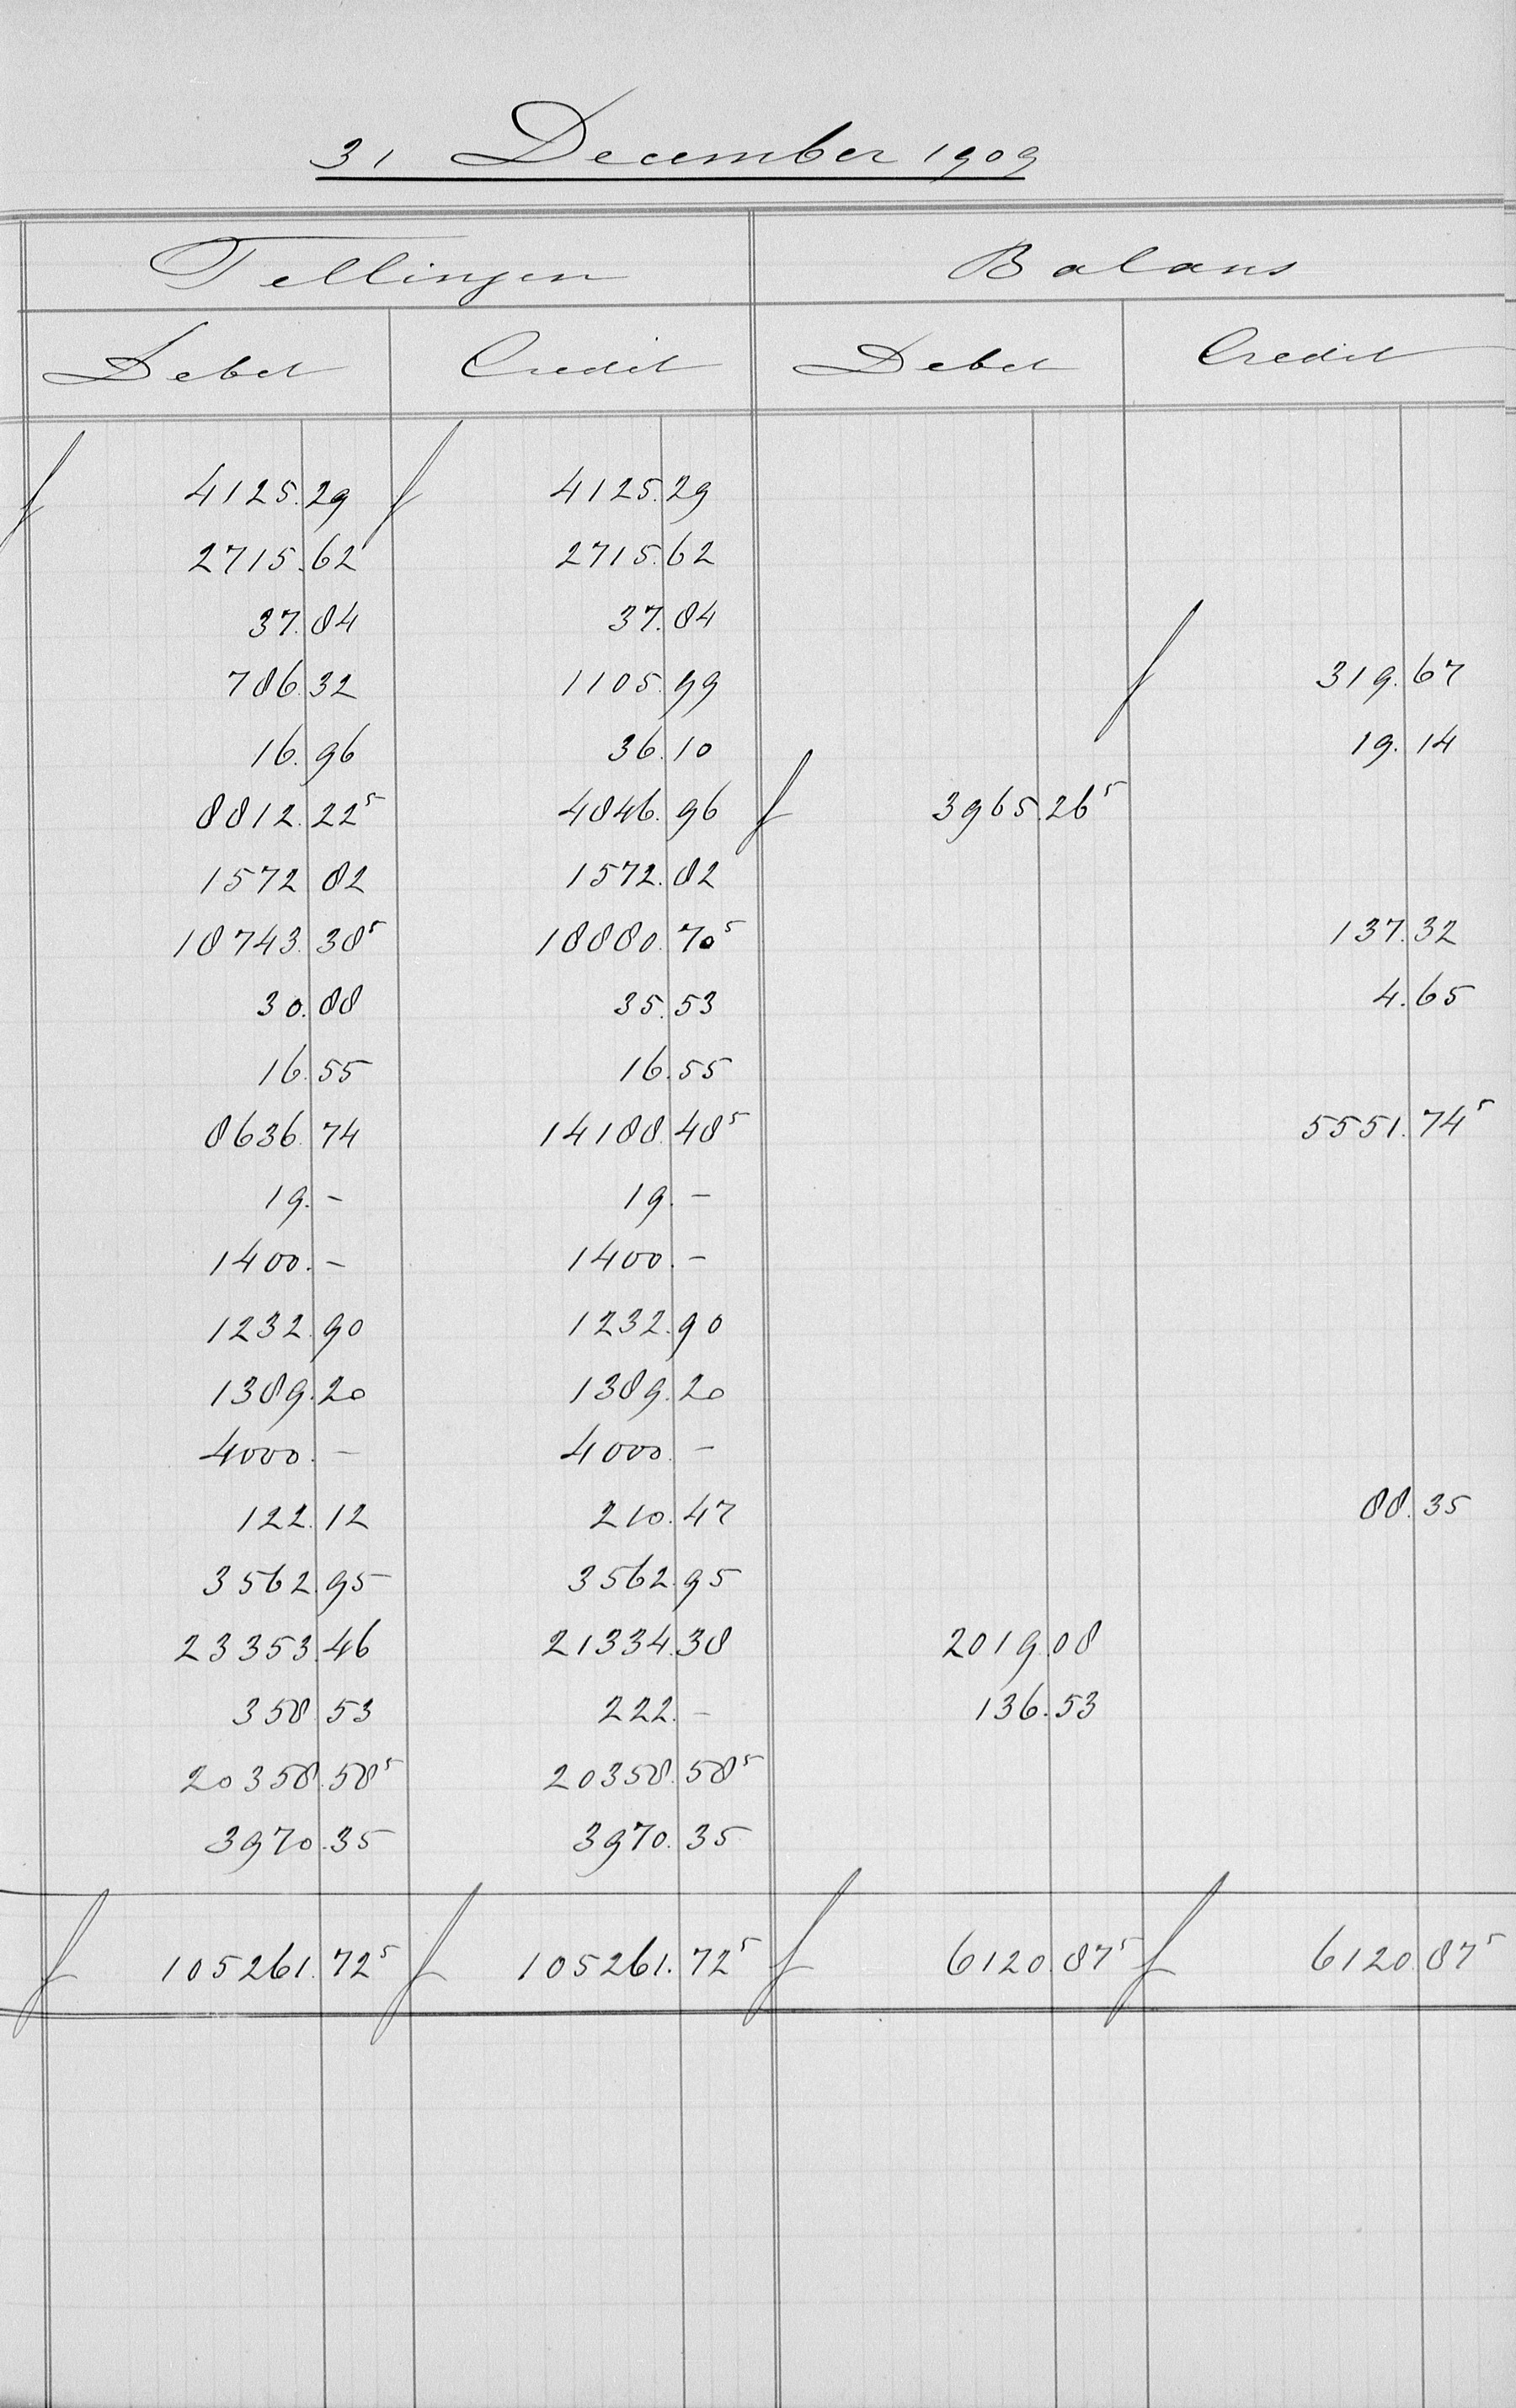 31 December 1909
Tellingen Balans
Debet Credit Debet Credit
f 4125.29 f 4125.29
2715.62 2715.62
37.84 37.84
786.32 1105.99 f 319.67
16.96 36.10 19.14
8812.22⁵ 4846.96 f 3965.26⁵
1572 82 1572.82
18743.38⁵ 18880.70⁵ 137.32
30.88 35.53 4.65
16.55 16.55
8636.74 14188.48⁵ 5551.74⁵
19.- 19.-
1400.- 1400.-
1232.90 1232.90
1389.20 1389.20
4000.- 4000.-
122.12 210.47 88.35
3562.95 3562.95
23353.46 21334.38 2019.08
358 53 222.- 136.53
20358.58⁵ 20358.58⁵
3970.35 3970.35
f 105261.72⁵ f 105261.72⁵ f 6120.87⁵ f 6120.87⁵